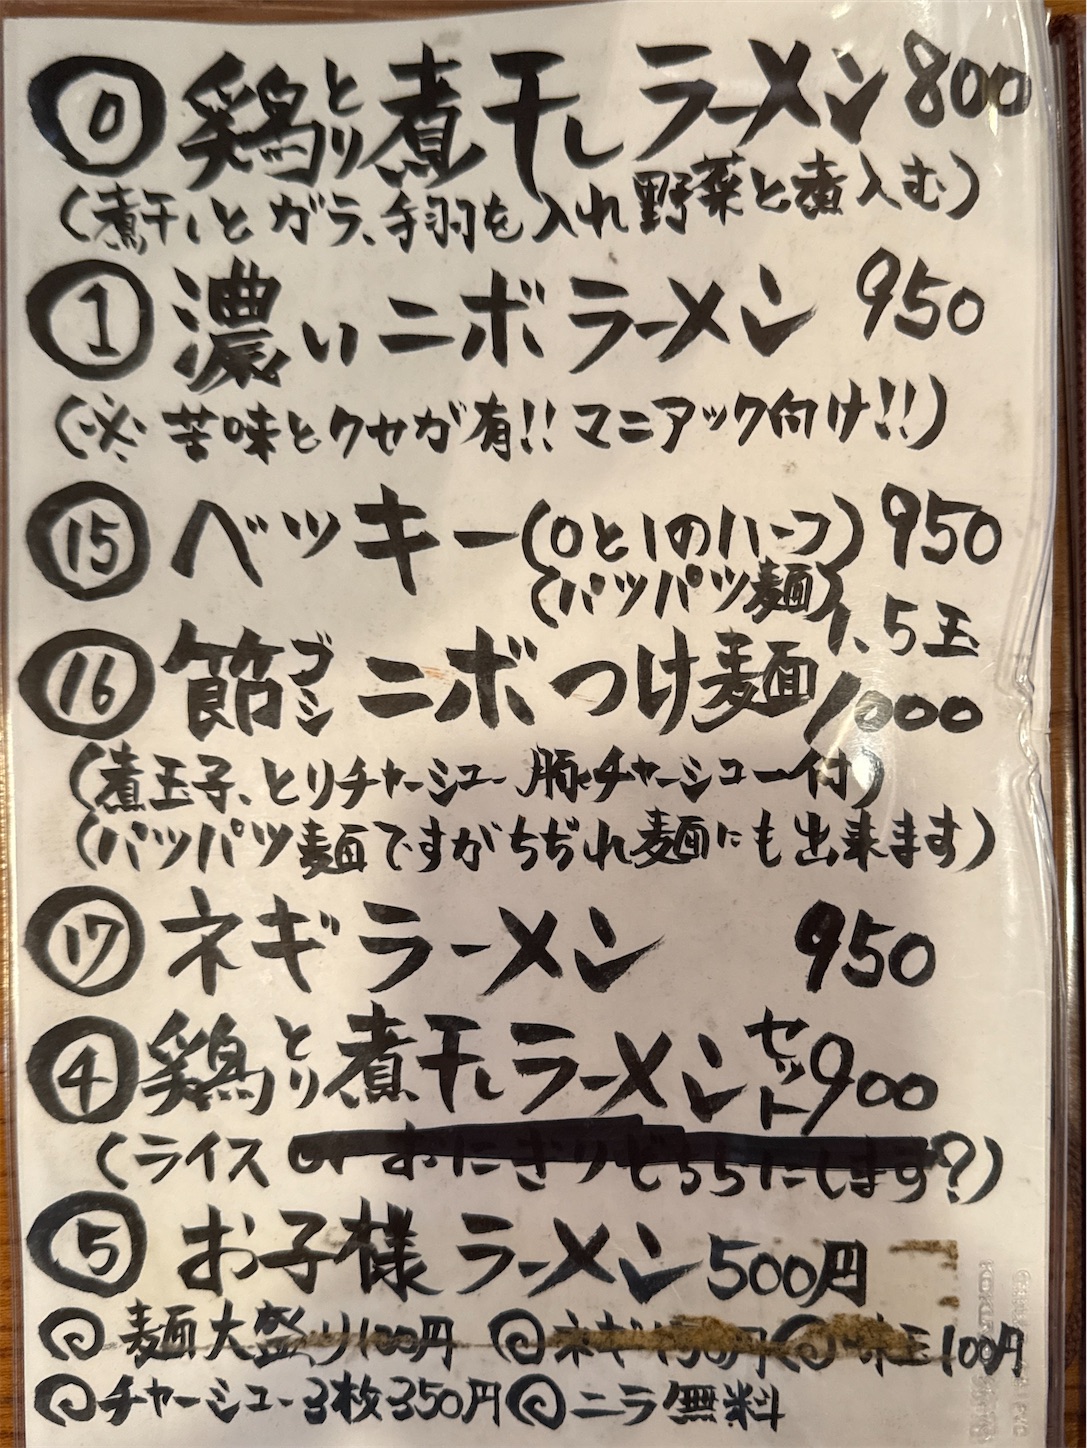 ⓪ 鶏とり煮干しラーメン 800
(煮干しとガラ、手羽を入れ野菜と煮込む)
① 濃いニボラーメン 950
(※ 苦味とクセが有!! マニアック向け!!)
⑮ ベッキー(0と1のハーフ) 950
(パツパツ麺)
1.5玉
⑯ 節ゴシニボつけ麺 1000
(煮玉子、とりチャーシュー 豚チャーシュー付)
(パツパツ麺ですがちぢれ麺にも出来ます)
⑰ ネギラーメン 950
④ 鶏とり煮干しラーメンセット900
(ライス or おにぎりどちらにします?)
⑤ お子様ラーメン500円
麺大盛り100円 ネギ150円 味玉100円
チャーシュー3枚350円 ニラ無料